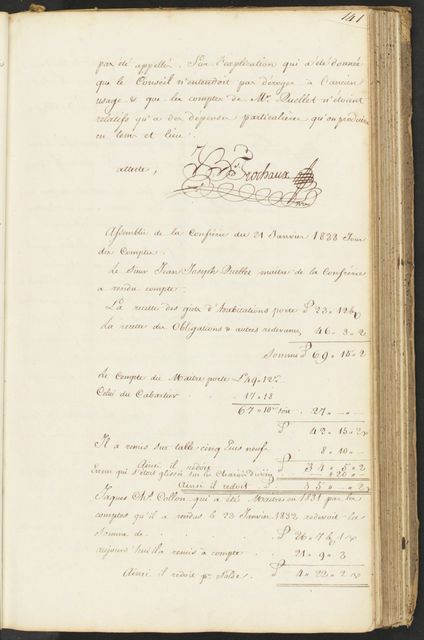 141
pas été appellée. Sur l'explication qui a été donnée
que le Conseil n'entendoit pas déroger à l'ancien
usage & que les comptes de Mr. Quellet n'étoient
relatifs qu'a des depenses particulières qu'on produira
en tems et lieu.
atteste,
Trochaux
Assemblée de la Confrérie du 21 Janvier 1838 Jour
des Comptes.
Le Sieur Jean Joseph Quellet maitre de la Confrérie
a rendu compte.
La recette des gets d'habitations porte 23 " 12
La recette des Obligations & autres redevances 46 " 3 " 2
Somme 69 " 15 " 2
Le Compte du Maitre porte L 49 " 12
Celui du Cabartier 17 " 18
67 " 10 soit 27 " — " —
42 " 15 " 2
Il a remis sur table cinq Ecus neufs 8 " 10 " —
Ainsi il redoit 34 " 5 " 2
Erreur qui s'étoit glissée sur la " 20 " —
Ainsi il redoit 35 " " 2
Jaques Collon qui a été Maitre en 1831 par les
comptes qu'il a rendus le 23 Janvier 1832 redevoit la
somme de 26 " 7 " 1
aujourd'hui il a remis à compte 21 " 9 " 3
Ainsi il redoit pr. Solde. 4 " 22 " 2